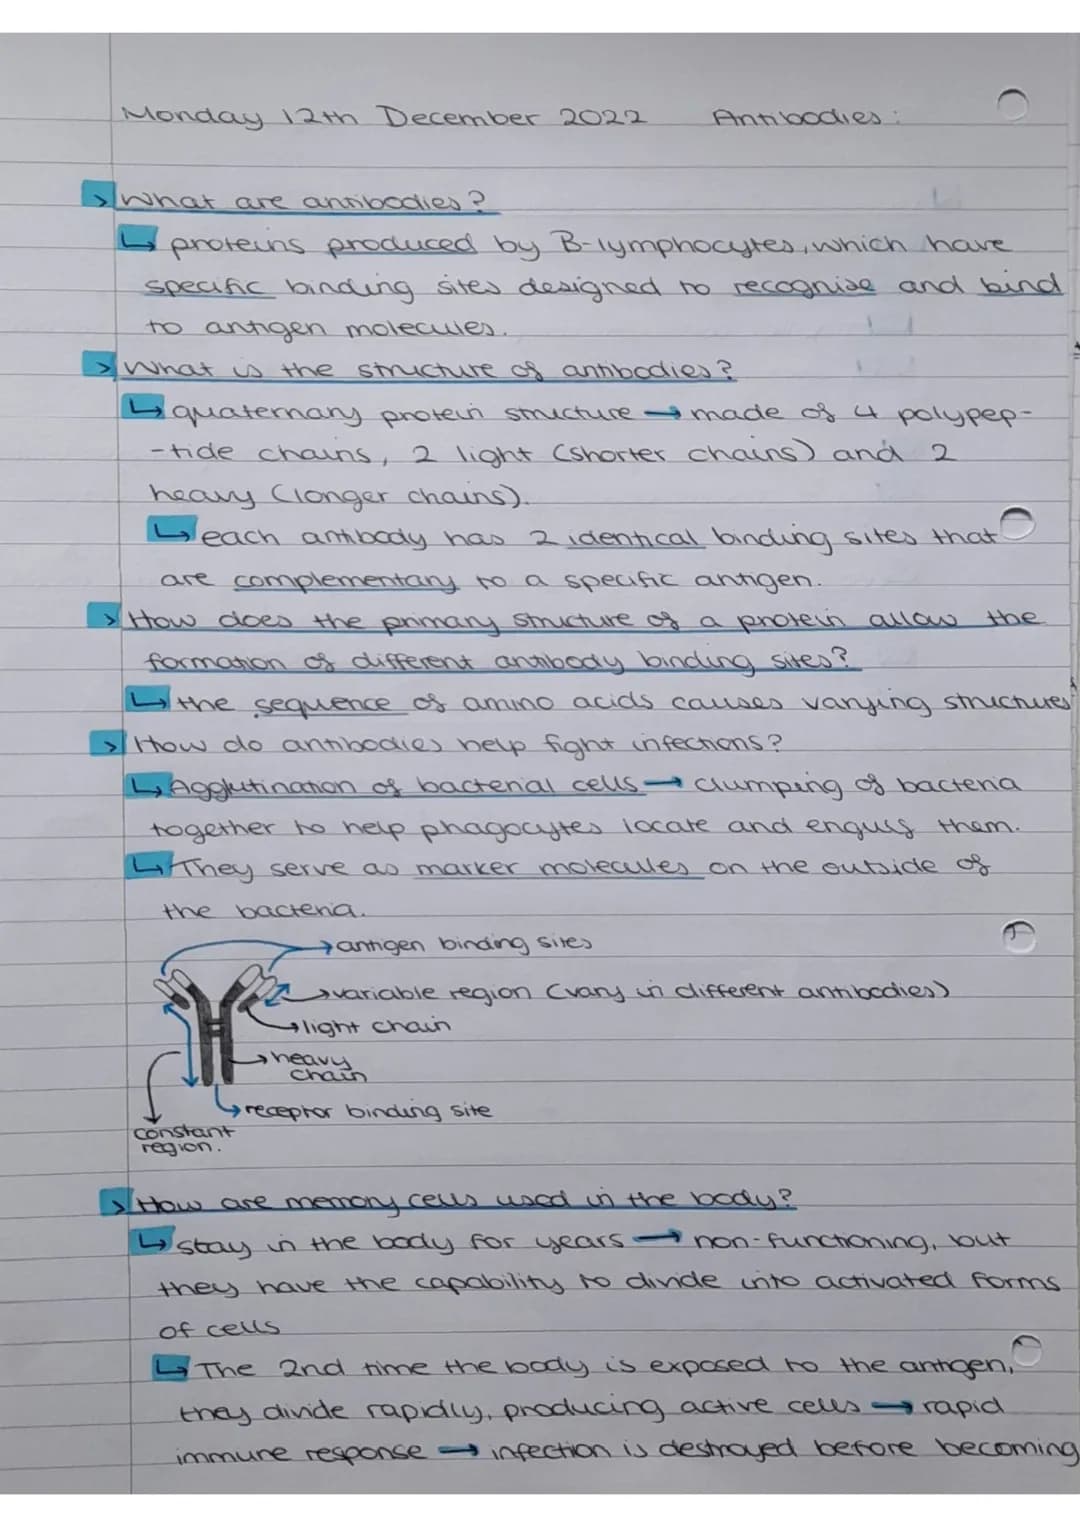 Monday 12th December 2022 Antibodies:
> What are antibodies?
↳ proteins produced by B-lymphocytes, which have
specific binding sites designed to recognise and bind
to antigen molecules.
> What is the structure of antibodies?
↳ quaternary protein structure → made of 4 polypep-
-tide chains, 2 light (shorter chains) and 2
heavy (longer chains).
↳ each antibody has 2 identical binding sites that
are complementary to a specific antigen.
> How does the primary structure of a protein allow the
formation of different antibody binding sites?
↳ the sequence of amino acids causes varying structures
> How do antibodies help fight infections?
↳ Agglutination of bacterial cells → clumping of bacteria
together to help phagocytes locate and engulf them.
↳ They serve as marker molecules on the outside of
the bacteria.
→ antigen binding sites
→ variable region (vary in different antibodies)
→ light chain
→ heavy
chain
↳ receptor binding site
constant
region.
> How are memory cells used in the body?
↳ stay in the body for years → non-functioning, but
they have the capability to divide into activated forms
of cells
↳ The 2nd time the body is exposed to the antigen,
they divide rapidly, producing active cells → rapid
immune response → infection is destroyed before becoming